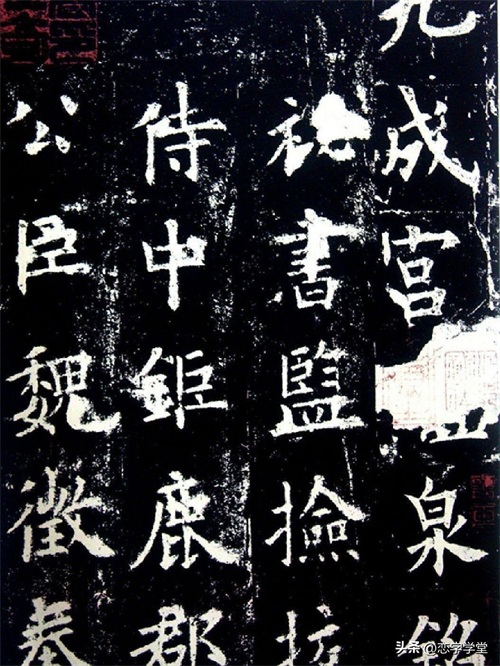 九成宮泉銘
祕書監撿挍
侍中鉅鹿郡
公臣魏徵奉
头条 @恋字学堂